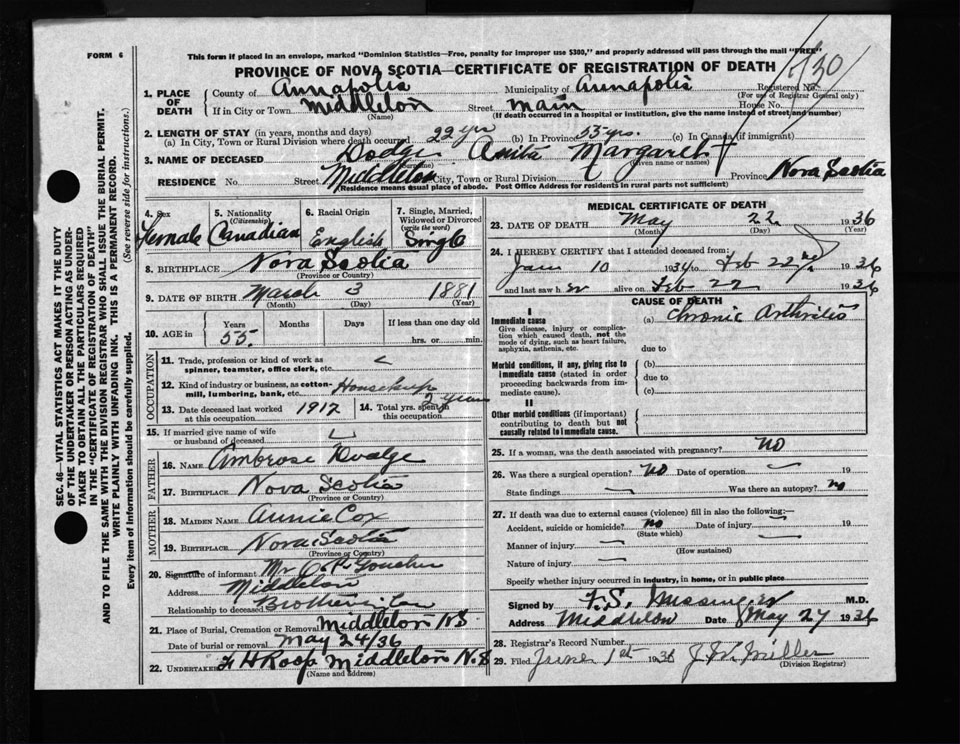 FORM 6
This form if placed in an envelope, marked "Dominion Statistics—Free, penalty for improper use $300," and properly addressed will pass through the mail "FREE"
PROVINCE OF NOVA SCOTIA—CERTIFICATE OF REGISTRATION OF DEATH
1. PLACE OF DEATH
County of Annapolis Municipality of Annapolis Registered No.
(For use of Registrar General only)
If in City or Town Middleton Street Main House No.
(Name) (If death occurred in a hospital or institution, give the name instead of street and number)
2. LENGTH OF STAY (in years, months and days)
(a) In City, Town or Rural Division where death occurred 22 yrs (b) In Province 55 yrs. (c) In Canada (if immigrant)
3. NAME OF DECEASED Dodge Anita Margaret
(Surname) (Given name or names)
RESIDENCE No. Street Middleton City, Town or Rural Division Province Nova Scotia
(Residence means usual place of abode. Post Office Address for residents in rural parts not sufficient)
4. Sex Female
5. Nationality (Citizenship) Canadian
6. Racial Origin English
7. Single, Married, Widowed or Divorced (write the word) Single
8. BIRTHPLACE Nova Scotia
(Province or Country)
9. DATE OF BIRTH March 3 1881
(Month) (Day) (Year)
10. AGE in Years Months Days If less than one day old
55. hrs. or min.
OCCUPATION
11. Trade, profession or kind of work as
spinner, teamster, office clerk, etc.
12. Kind of industry or business, as cotton-
mill, lumbering, bank, etc.
13. Date deceased last worked
at this occupation 1912
14. Total yrs. spent in
this occupation 2 years
15. If married give name of wife
or husband of deceased
FATHER
16. NAME Ambrose Dodge
17. BIRTHPLACE Nova Scotia
(Province or Country)
MOTHER
18. MAIDEN NAME Annie Cox
19. BIRTHPLACE Nova Scotia
(Province or Country)
20. Signature of informant Mr Goucher
Address Middleton
Relationship to deceased Brother in law
21. Place of Burial, Cremation or Removal Middleton NS
Date of burial or removal May 24/36
22. UNDERTAKER H Roop Middleton N.S
(Name and address)
MEDICAL CERTIFICATE OF DEATH
23. DATE OF DEATH May 22 1936
(Month) (Day) (Year)
24. I HEREBY CERTIFY that I attended deceased from:
Jan 10 1936 to Feb 22nd 1936
and last saw her alive on Feb 22 1936
CAUSE OF DEATH
I
Immediate cause
Give disease, injury or complication which caused death, not the
mode of dying, such as heart failure,
asphyxia, asthenia, etc.
(a) Chronic Arthritis
due to
Morbid conditions, if any, giving rise to
immediate cause (stated in order
proceeding backwards from immediate cause).
(b)
due to
(c)
II
Other morbid conditions (if important)
contributing to death but not
causally related to immediate cause.
25. If a woman, was the death associated with pregnancy? No
26. Was there a surgical operation? No Date of operation 19
State findings Was there an autopsy? no
27. If death was due to external causes (violence) fill in also the following:—
Accident, suicide or homicide? no Date of injury 19
(State which)
Manner of injury
(How sustained)
Nature of injury
Specify whether injury occurred in industry, in home, or in public place
Signed by F.S. Messenger M.D.
Address Middleton Date May 27 1936
28. Registrar's Record Number
29. Filed June 1st 1936 Miller
(Division Registrar)
SEC. 46—VITAL STATISTICS ACT MAKES IT THE DUTY
OF THE UNDERTAKER OR PERSON ACTING AS UNDER-
TAKER TO OBTAIN ALL THE PARTICULARS REQUIRED
IN THE "CERTIFICATE OF REGISTRATION OF DEATH"
AND TO FILE THE SAME WITH THE DIVISION REGISTRAR WHO SHALL ISSUE THE BURIAL PERMIT.
WRITE PLAINLY WITH UNFADING INK. THIS IS A PERMANENT RECORD.
Every item of information should be carefully supplied. (See reverse side for instructions.)